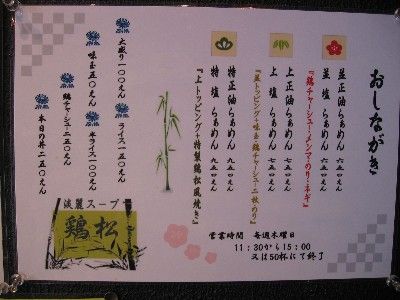 おしながき
並正油らぁめん 六五〇えん
並塩らぁめん 六五〇えん
『鶏チャーシュー・メンマ・のり・ネギ』
上正油らぁめん 七五〇えん
上塩らぁめん 七五〇えん
『並トッピング+味玉・鶏チャーシュー二枚・のり』
特正油らぁめん 九五〇えん
特塩らぁめん 九五〇えん
『上トッピング+特製鶏松風焼き』
大盛り一〇〇えん
味玉一五〇えん
鶏チャーシュー二五〇えん
本日の丼二五〇えん
ライス一五〇えん
半ライス一〇〇えん
淡麗スープ
鶏松
営業時間 毎週木曜日
11:30から15:00
又は50杯にて終了